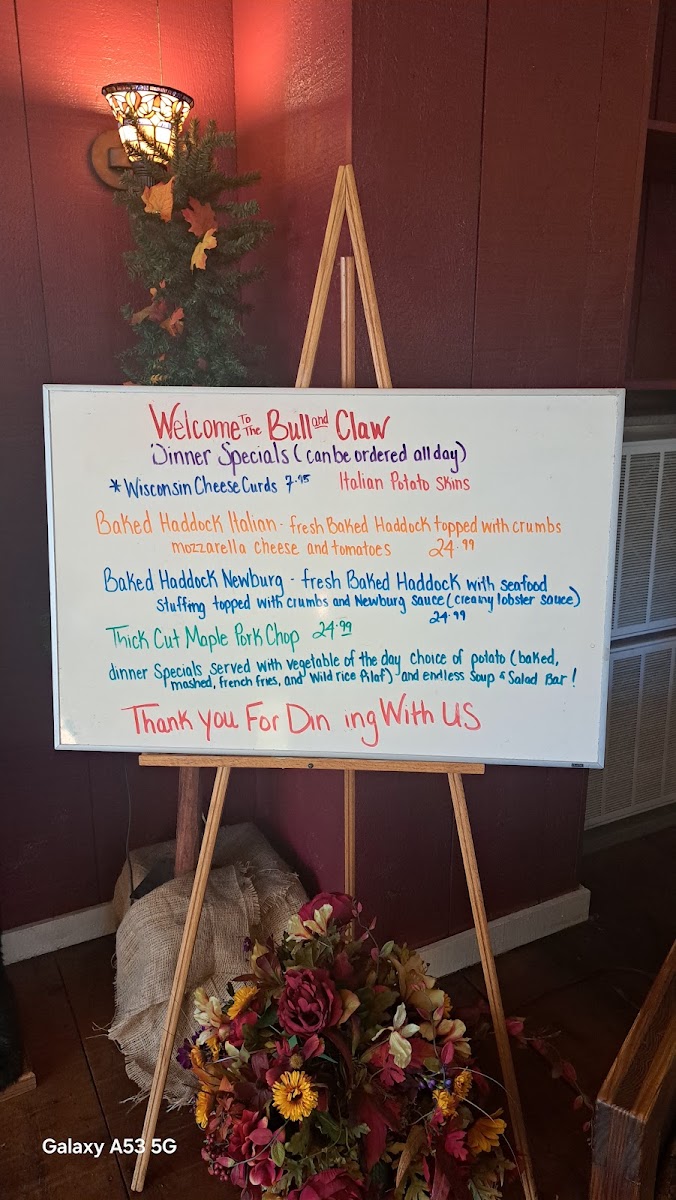 Welcome To The Bull and Claw
Dinner Specials (can be ordered all day)
* Wisconsin Cheese Curds 7.95 Italian Potato Skins
Baked Haddock Italian - fresh Baked Haddock topped with crumbs
mozzarella cheese and tomatoes 24.99
Baked Haddock Newburg - fresh Baked Haddock with seafood
stuffing topped with crumbs and Newburg sauce (creamy lobster sauce)
24.99
Thick Cut Maple Pork Chop 24.99
dinner Specials served with vegetable of the day choice of potato (baked,
mashed, french fries, and Wild rice Pilaf) and endless Soup & Salad Bar!
Thank you For Din ing With US
Galaxy A53 5G